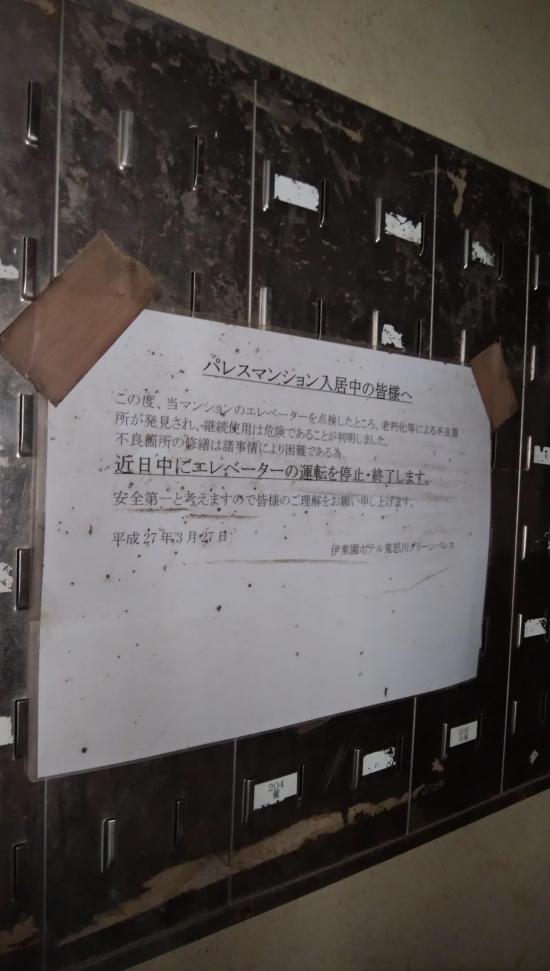 パレスマンション入居中の皆様へ
この度、当マンションのエレベーターを点検したところ、老朽化等による不良箇
所が発見され、継続使用は危険であることが判明しました。
不良箇所の修繕は諸事情により困難である為、
近日中にエレベーターの運転を停止・終了します。
安全第一と考えますので皆様のご理解をお願い申し上げます。
平成27年3月27日
伊東園ホテル鬼怒川グリーンパレス
204